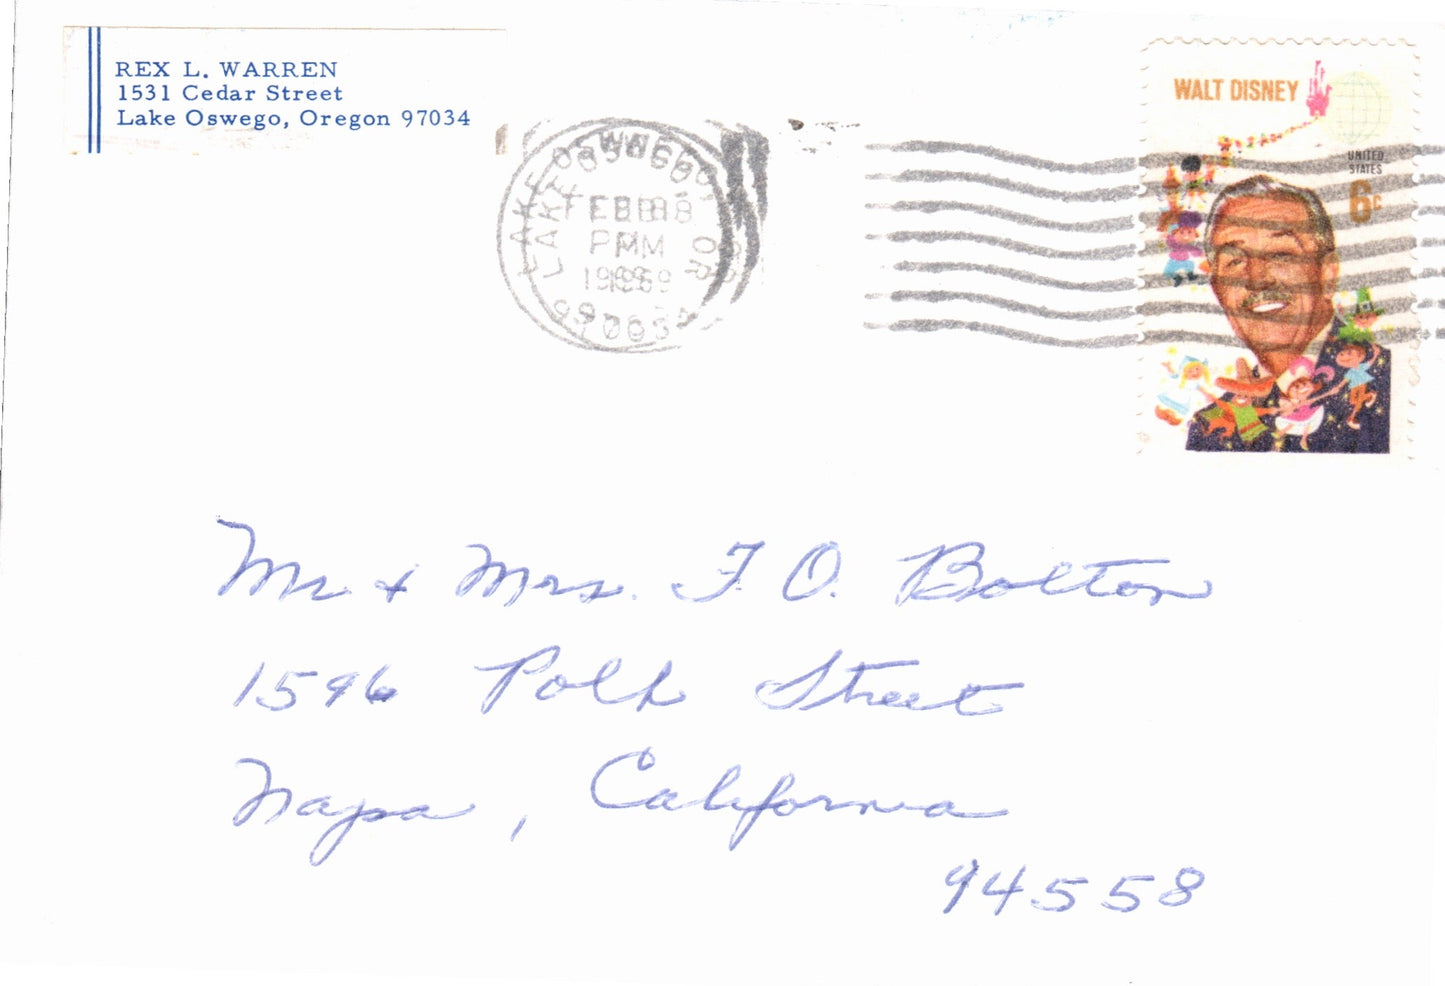 REX L. WARREN
1531 Cedar Street
Lake Oswego, Oregon 97034
LAKE OSWEGO, OR
FEB 8
PM
1969
WALT DISNEY
UNITED
STATES
6c
Mr. & Mrs. F. O. Bolton
1596 Polk Street
Napa, California
94558